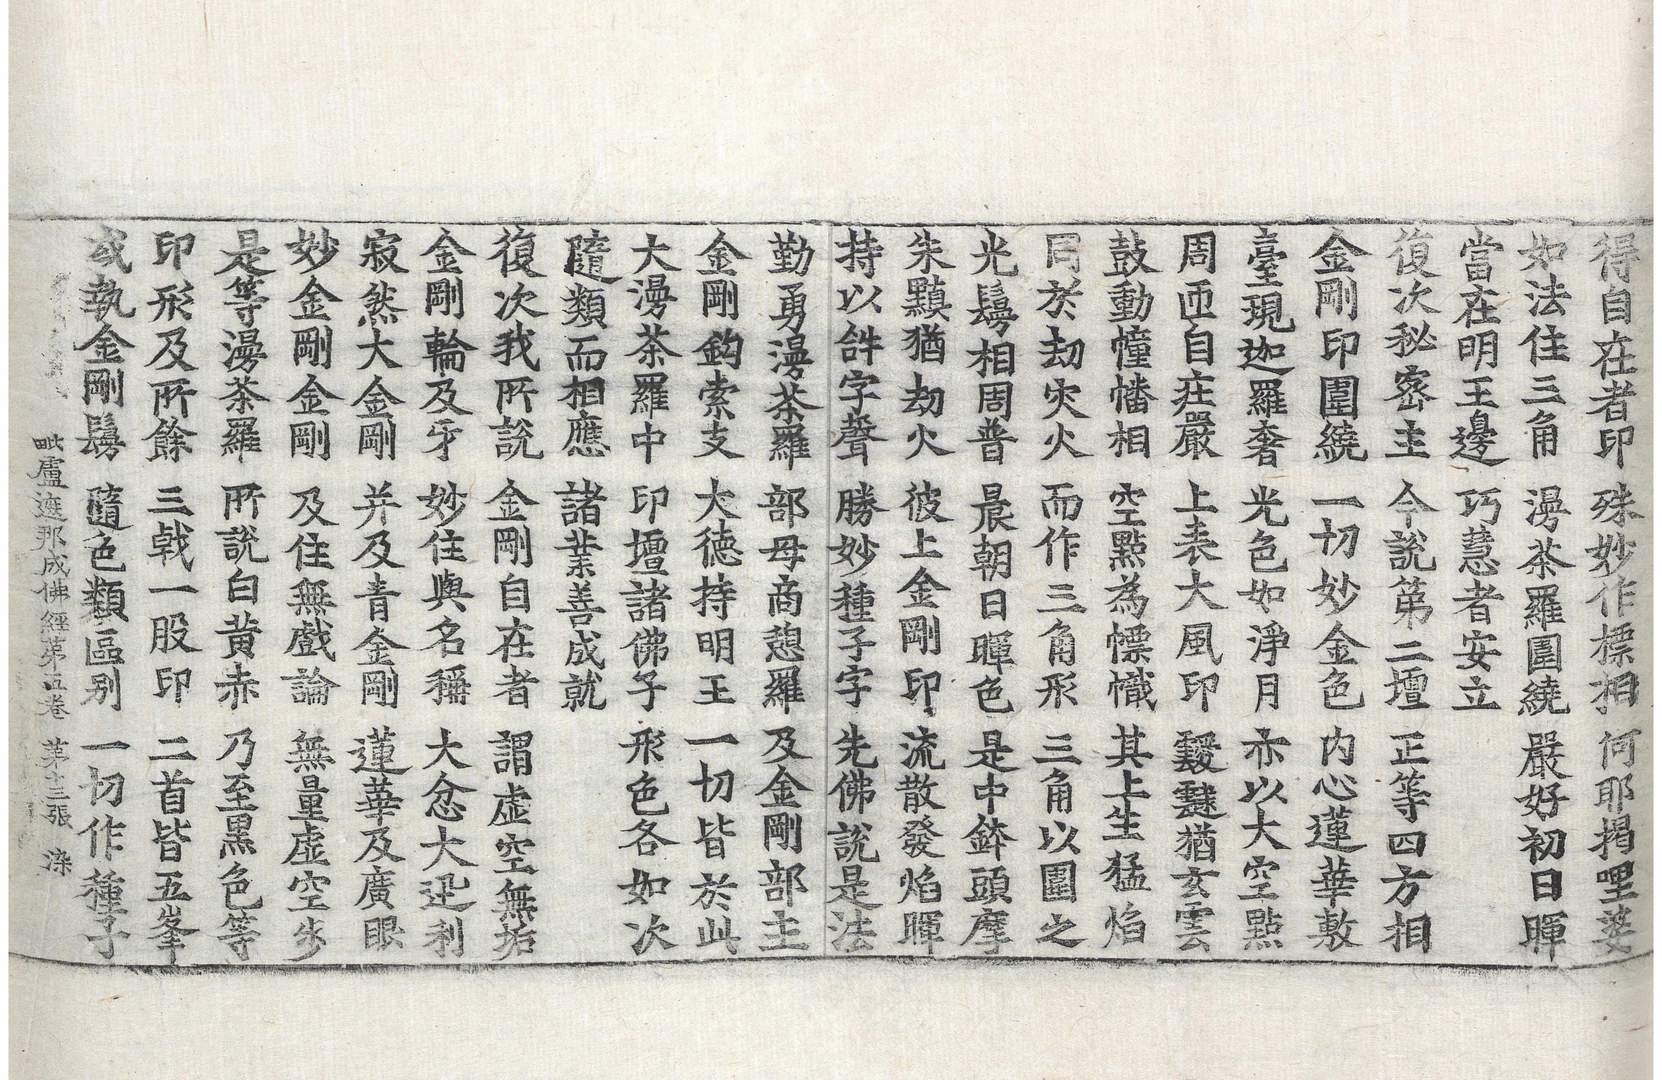 得自在者印 殊妙作標相 何耶揭哩婆
如法住三角 漫茶羅圍繞 嚴好初日暉
當在明王邊 巧慧者安立
復次秘密主 今說第二壇 正等四方相
金剛印圍繞 一切妙金色 内心蓮華敷
臺現迦羅奢 光色如淨月 亦以大空點
周匝自庄嚴 上表大風印 靉靆猶玄雲
鼓動幢幡相 空點為幖幟 其上生猛焰
同於劫灾火 而作三角形 三角以圍之
光鬘相周普 晨朝日暉色 是中鉢頭摩
朱黰猶劫火 彼上金剛印 流散發焰暉
持以𤙖字聲 勝妙種子字 先佛說是法
勤勇漫茶羅 部母商憩羅 及金剛部主
金剛鈎索支 大德持明王 一切皆於此
大漫茶羅中 印壇諸佛子 形色各如次
隨類而相應 諸業善成就
復次我所說 金剛自在者 謂虛空無垢
金剛輪及牙 妙住與名稱 大忿大迅利
寂然大金剛 并及青金剛 蓮華及廣眼
妙金剛金剛 及住無戲論 無量虛空步
是等漫茶羅 所說白黃赤 乃至黑色等
印形及所餘 三戟一股印 二首皆五峯
或執金剛鬘 隨色類區别 一切作種子
毗盧遮那成佛經第五卷 第十三張 染